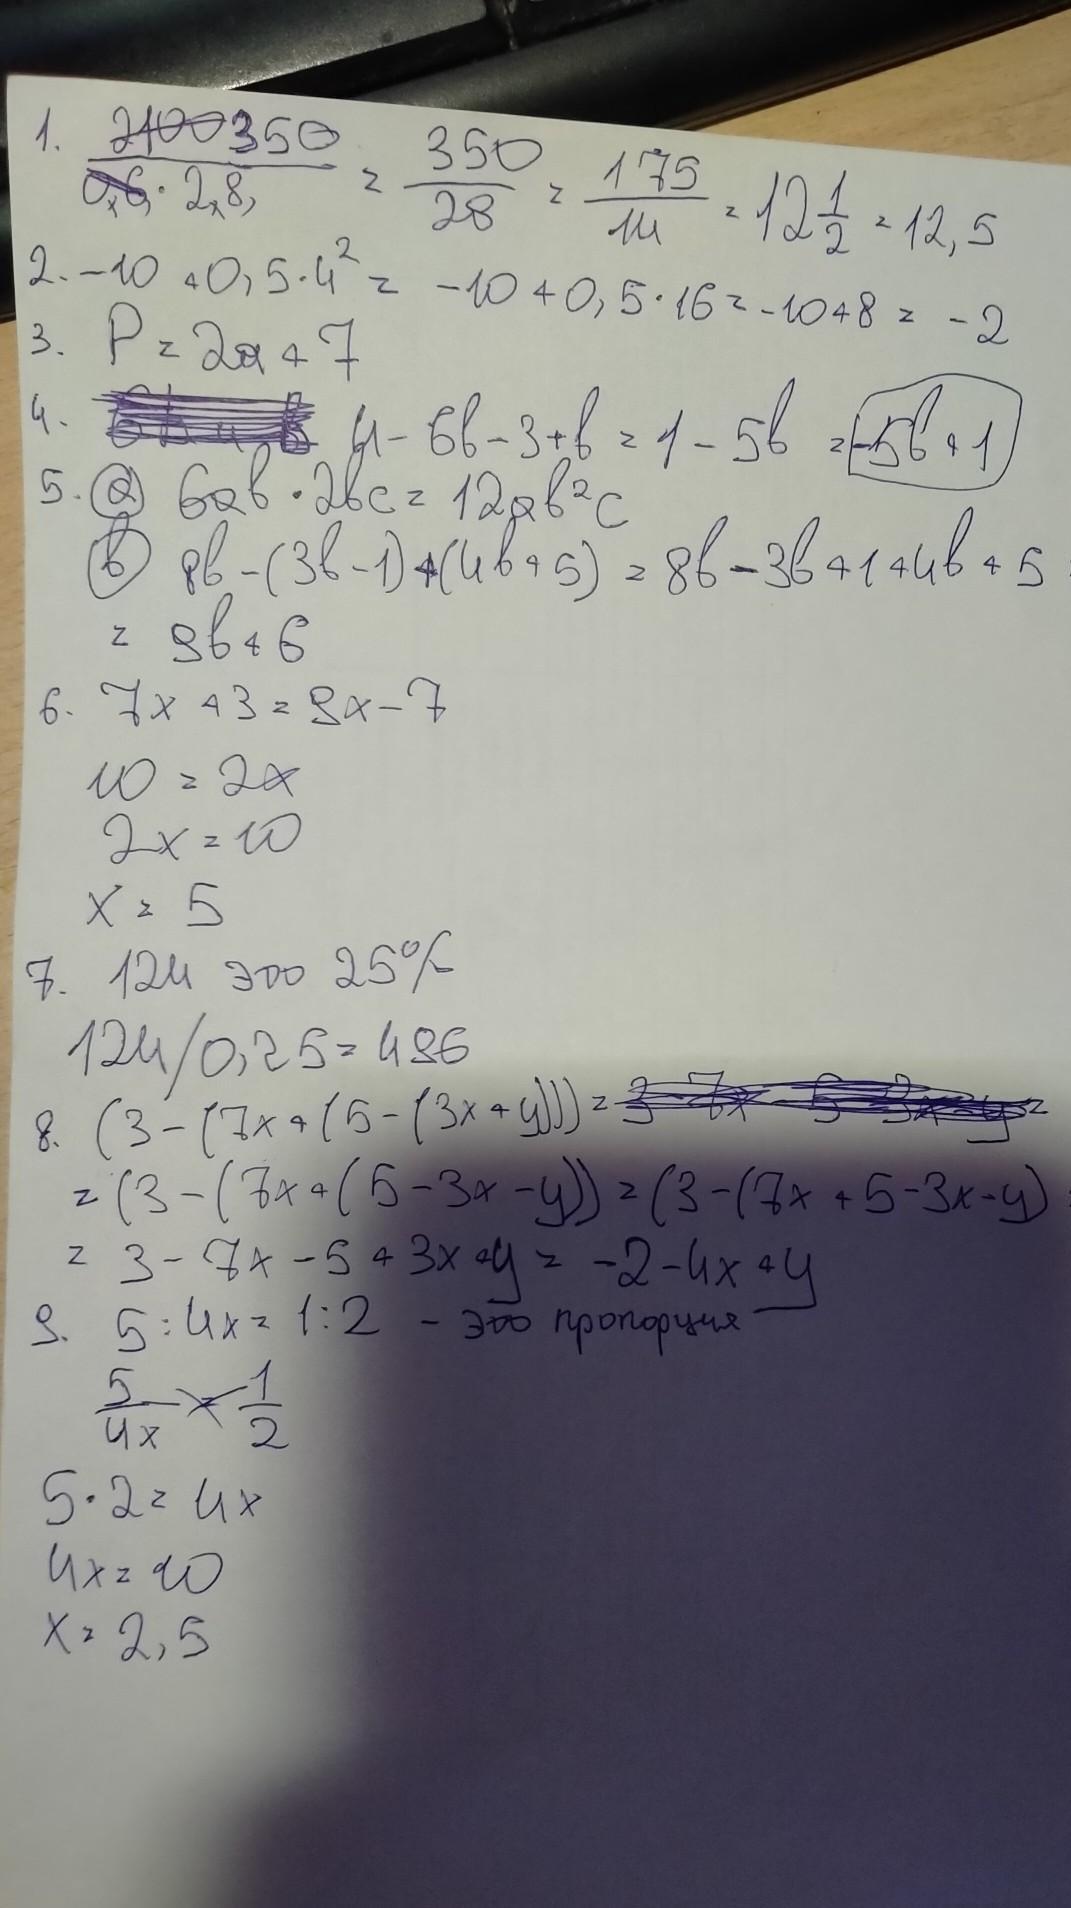 1. 2100 350 / 0,6 · 2,8 = 350/28 = 175/14 = 12 1/2 = 12,5
2. -10 + 0,5·4² = -10 + 0,5·16 = -10+8 = -2
3. P = 2a + 7
4. 4 - 6b - 3 + b = 1 - 5b = -5b + 1
5. a) 6ab · 2bc = 12ab²c
b) 8b - (3b - 1) + (4b + 5) = 8b - 3b + 1 + 4b + 5 =
= 9b + 6
6. 7x + 3 = 9x - 7
10 = 2x
2x = 10
x = 5
7. 124 это 25%
124/0,25 = 496
8. (3 - (7x + (5 - (3x + y))) = 3 - 7x - 5 - 3x - y =
= (3 - (7x + (5 - 3x - y)) = (3 - (7x + 5 - 3x - y) =
= 3 - 7x - 5 + 3x + y = -2 - 4x + y
9. 5 : 4x = 1 : 2 - это пропорция
5/4x = 1/2
5 · 2 = 4x
4x = 10
x = 2,5